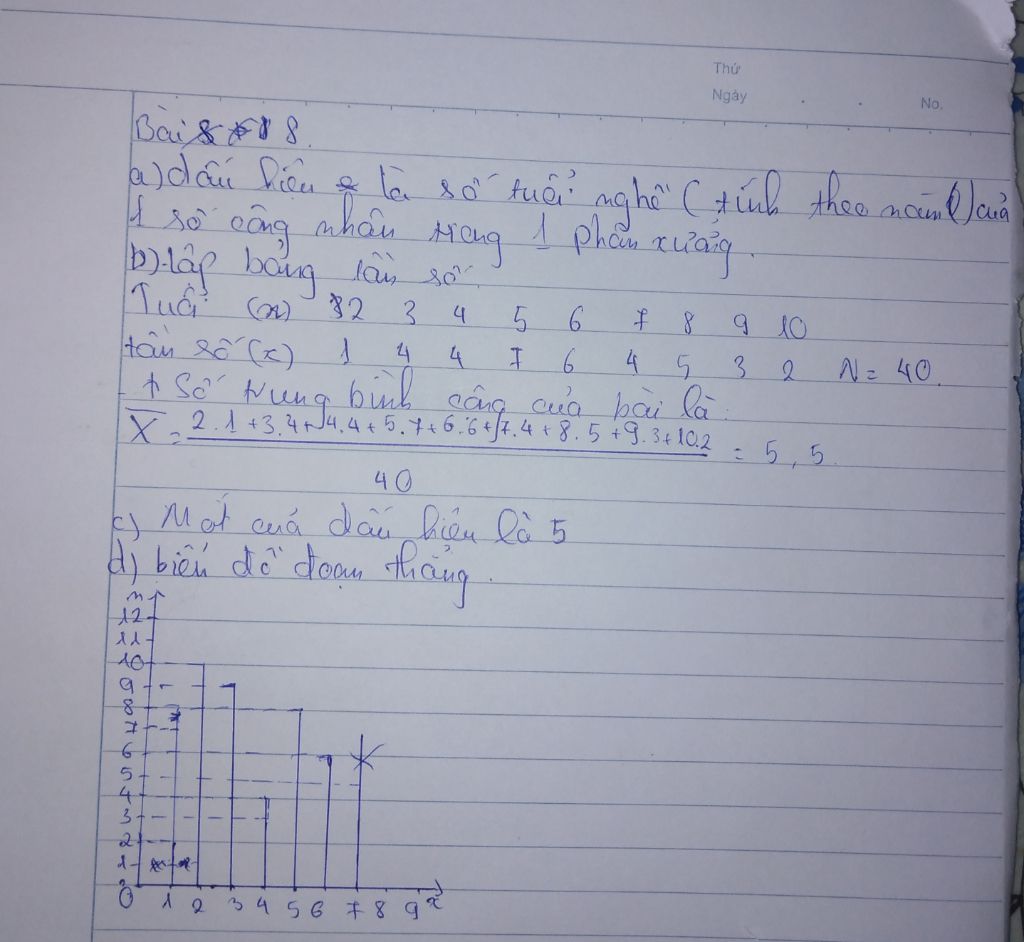 Thứ
Ngày . . No.
Bài 8.
a) dấu hiệu là số tuổi nghề ( tính theo năm ) của
1 số công nhân trong 1 phân xưởng.
b) lập bảng tần số.
Tuổi (x) 2 3 4 5 6 7 8 9 10
tần số (x) 1 4 4 7 6 4 5 3 2 N = 40.
+ Số trung bình cộng của bài là:
X̄ = 2.1+3.4+4.4+5.7+6.6+7.4+8.5+9.3+10.2 = 5,5.
40
c) Mot cuả dấu hiệu là 5
d) biểu đồ đoạn thẳng.
n
12
11
10
9
8
7
6
5
4
3
2
1
0 1 2 3 4 5 6 7 8 9 x